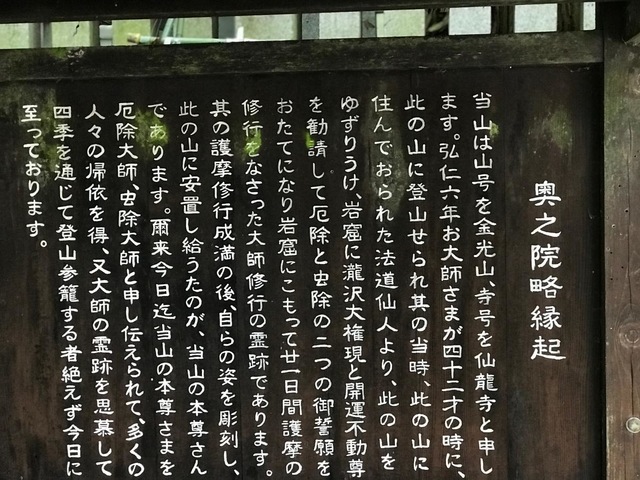 奥之院略縁起
当山は山号を金光山、寺号を仙龍寺と申し
ます。弘仁六年お大師さまが四十二才の時に、
此の山に登山せられ其の当時、此の山に
住んでおられた法道仙人より、此の山を
ゆずりうけ、岩窟に瀧沢大権現と開運不動尊
を勧請して厄除と虫除の二つの御誓願を
おたてになり岩窟にこもって廿一日間護摩の
修行をなさった大師修行の霊跡であります。
其の護摩修行成満の後、自らの姿を彫刻し、
此の山に安置し給うたのが、当山の本尊さん
であります。爾来今日迄当山の本尊さまを
厄除大師、虫除大師と申し伝えられて、多くの
人々の帰依を得、又大師の霊跡を思慕して
四季を通じて登山参籠する者絶えず今日に
至っております。